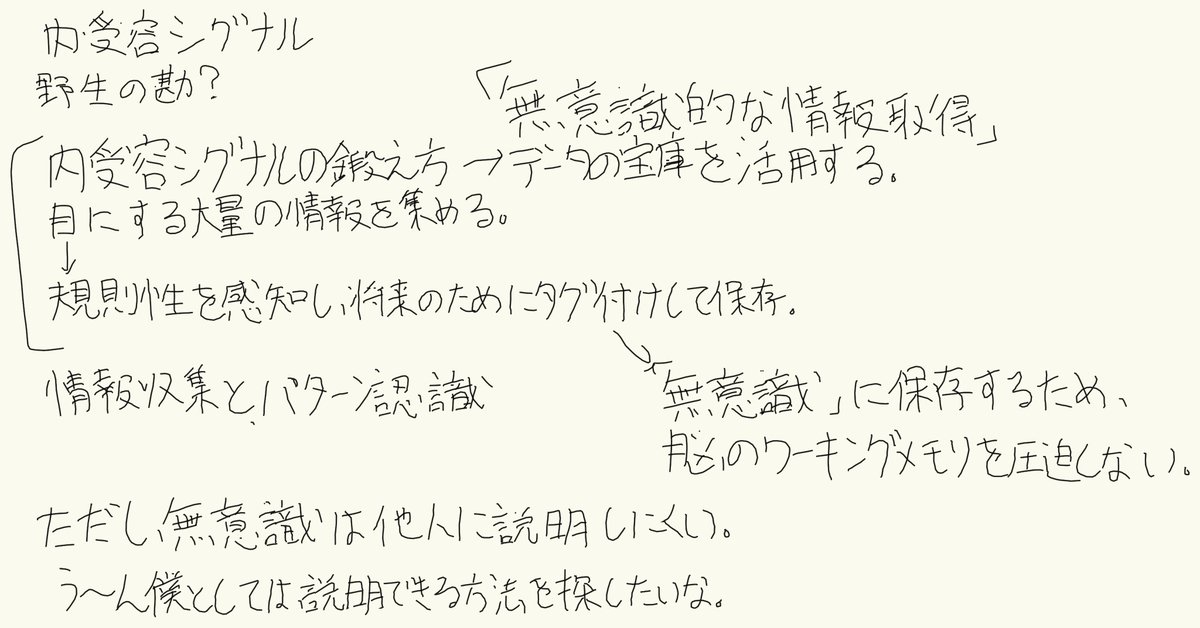 内受容シグナル
野生の勘？
「無意識的な情報取得」
内受容シグナルの鍛え方→データの宝庫を活用する。
目にする大量の情報を集める。
↓
規則性を感知し、将来のためにタグ付けして保存。
情報収集と、パターン認識
「無意識」に保存するため、
脳のワーキングメモリを圧迫しない。
ただし、無意識は他人に説明しにくい。
う〜ん僕としては説明できる方法を探したいな。